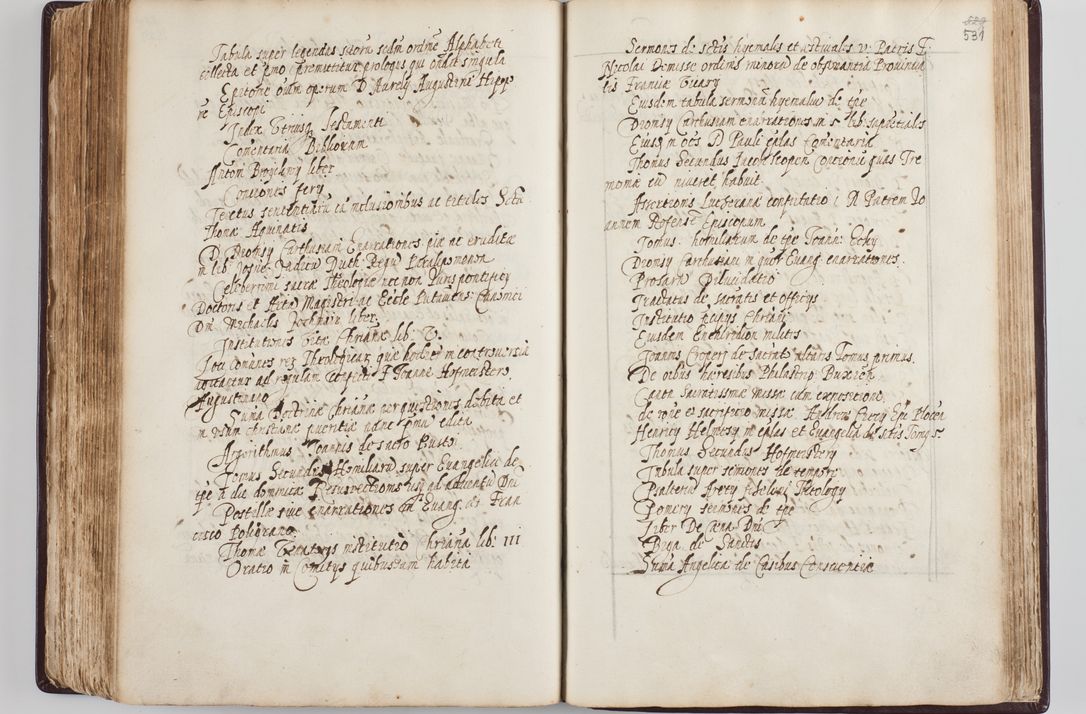 Tabula super legendas sctoru scdm ordine Alphabeti
collecta et pmo premittitur prologus qui ondit singula
Epitome oium operum D Aurely Augustini Hippo
ne Episcopi
Index Utriusq Testamenti
Comentaria Bibliorum
Antoni liber
Conciones fery
Tenetus sententiaru cu nclusionibus ac titulis Scti
Thomæ Aquinatis
D Dionisy Carthusiani Enarrationes piæ ac eruditæ
in lib Josue Judicu Ruth Regu Paralipomenon
Celeberrimi sacræ Theologiæ nec non Juris pontificy
Doctoris et Artiu Magistri ac Eccle Canonici
Dni Michaelis liber
Institutiones vitæ Chrianæ lib. V.
Loci comunes reru Theologicaru quæ hodie in controuersia
agitantur ad regulam F Joanne Hofmeistero
Augustiniano
Suma Doctrinæ Chrianæ per quæstiones dibita et
in vsum christianæ pueritiæ adnc pmu edita
Algorithmus Joannis de sacro Busto
Tomus Secundus Homiliaru super Euangelia de
tpe a die dominicæ Resurrectionis vsq ad aduentu Dni
Postillæ siue enarrationes in Euang. a Fran
cisco Poligrano
Thomæ institutio Chriana lib: III
Oratio in Comitys quibusdam habita
529
531
Sermones de sctis hyemalis et æstiualis v. Patris F.
Nicolai Denisse ordinis minoru de obseruantia Prouincia
lis Franciæ Vicary
Eiusdem tabula sermonu hyemaliu de tpe
Dionisy Carthusiani enarrationes in 5 lib: sapientiales
Eiusd in oes D Pauli eplas Comentaria
Thomus Secundus Jacob Conciones quas
habuit
Assertionis Lutheranæ confutatio p R Patrem Jo
annem Rofens Episcopum
Tomus. homiliarum de tpe Joann: Ecky
Dionisy Carthusiani in quor Euang enarrationes.
Prosaru Dilucidatio
Tractatus de sacratis et officys
Institutio Pripis Chriani
Eiusdem Enchiridion militis
Joannis Croperi de sacrato altaris Tomus primus.
De oibus hæresibus Philastrio
Canon Sacratissimæ missæ cum expositione
de more et sacrificio missæ Andreas Epi Plocen
Henrici Helmesy in eplas et Euangelia de sctis Tomus
Thomus Secundus Hofmeistery
Tabula super sermones de tempore
Psalteriu Theologi
Pomery sermones de tpe
Liber De cæna Dni
de Sanctis
Suma Angelica de Casibus Conscientiæ